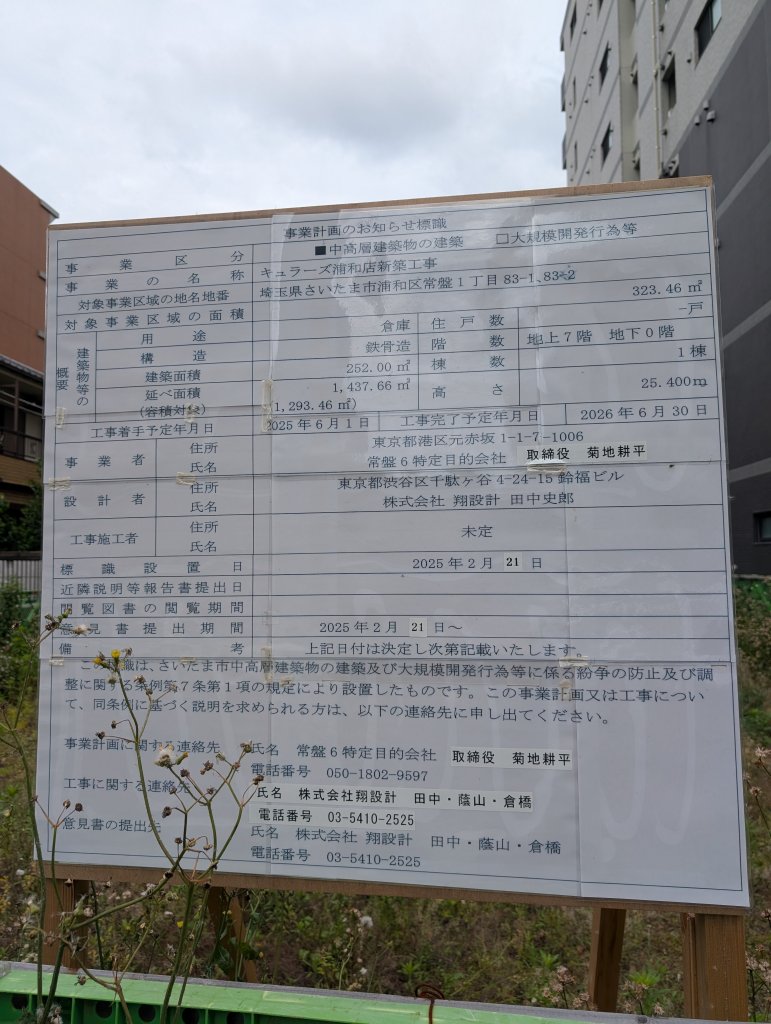 事業計画のお知らせ標識
事業区分 ■中高層建築物の建築 □大規模開発行為等
事業の名称 キュラーズ浦和店新築工事
対象事業区域の地名地番 埼玉県さいたま市浦和区常盤1丁目83-1、83-2
対象事業区域の面積 323.46㎡
建築物等の概要 用途 倉庫 住戸数 -戸
構造 鉄骨造 階数 地上7階 地下0階
建築面積 252.00㎡ 棟数 1棟
延べ面積 1,437.66㎡ 高さ 25.400m
(容積対象) (1,293.46㎡)
工事着手予定年月日 2025年6月1日 工事完了予定年月日 2026年6月30日
事業者 住所 東京都港区元赤坂1-1-7-1006
氏名 常盤6特定目的会社 取締役 菊地耕平
設計者 住所 東京都渋谷区千駄ヶ谷4-24-15鈴福ビル
氏名 株式会社 翔設計 田中史郎
工事施工者 住所 未定
氏名
標識設置日 2025年2月21日
近隣説明等報告書提出日
閲覧図書の閲覧期間
意見書提出期間 2025年2月21日~
備考 上記日付は決定し次第記載いたします。
この標識は、さいたま市中高層建築物の建築及び大規模開発行為等に係る紛争の防止及び調
整に関する条例第7条第1項の規定により設置したものです。この事業計画又は工事につい
て、同条例に基づく説明を求められる方は、以下の連絡先に申し出てください。
事業計画に関する連絡先 氏名 常盤6特定目的会社 取締役 菊地耕平
電話番号 050-1802-9597
工事に関する連絡先 氏名 株式会社翔設計 田中・蔭山・倉橋
電話番号 03-5410-2525
意見書の提出先 氏名 株式会社 翔設計 田中・蔭山・倉橋
電話番号 03-5410-2525